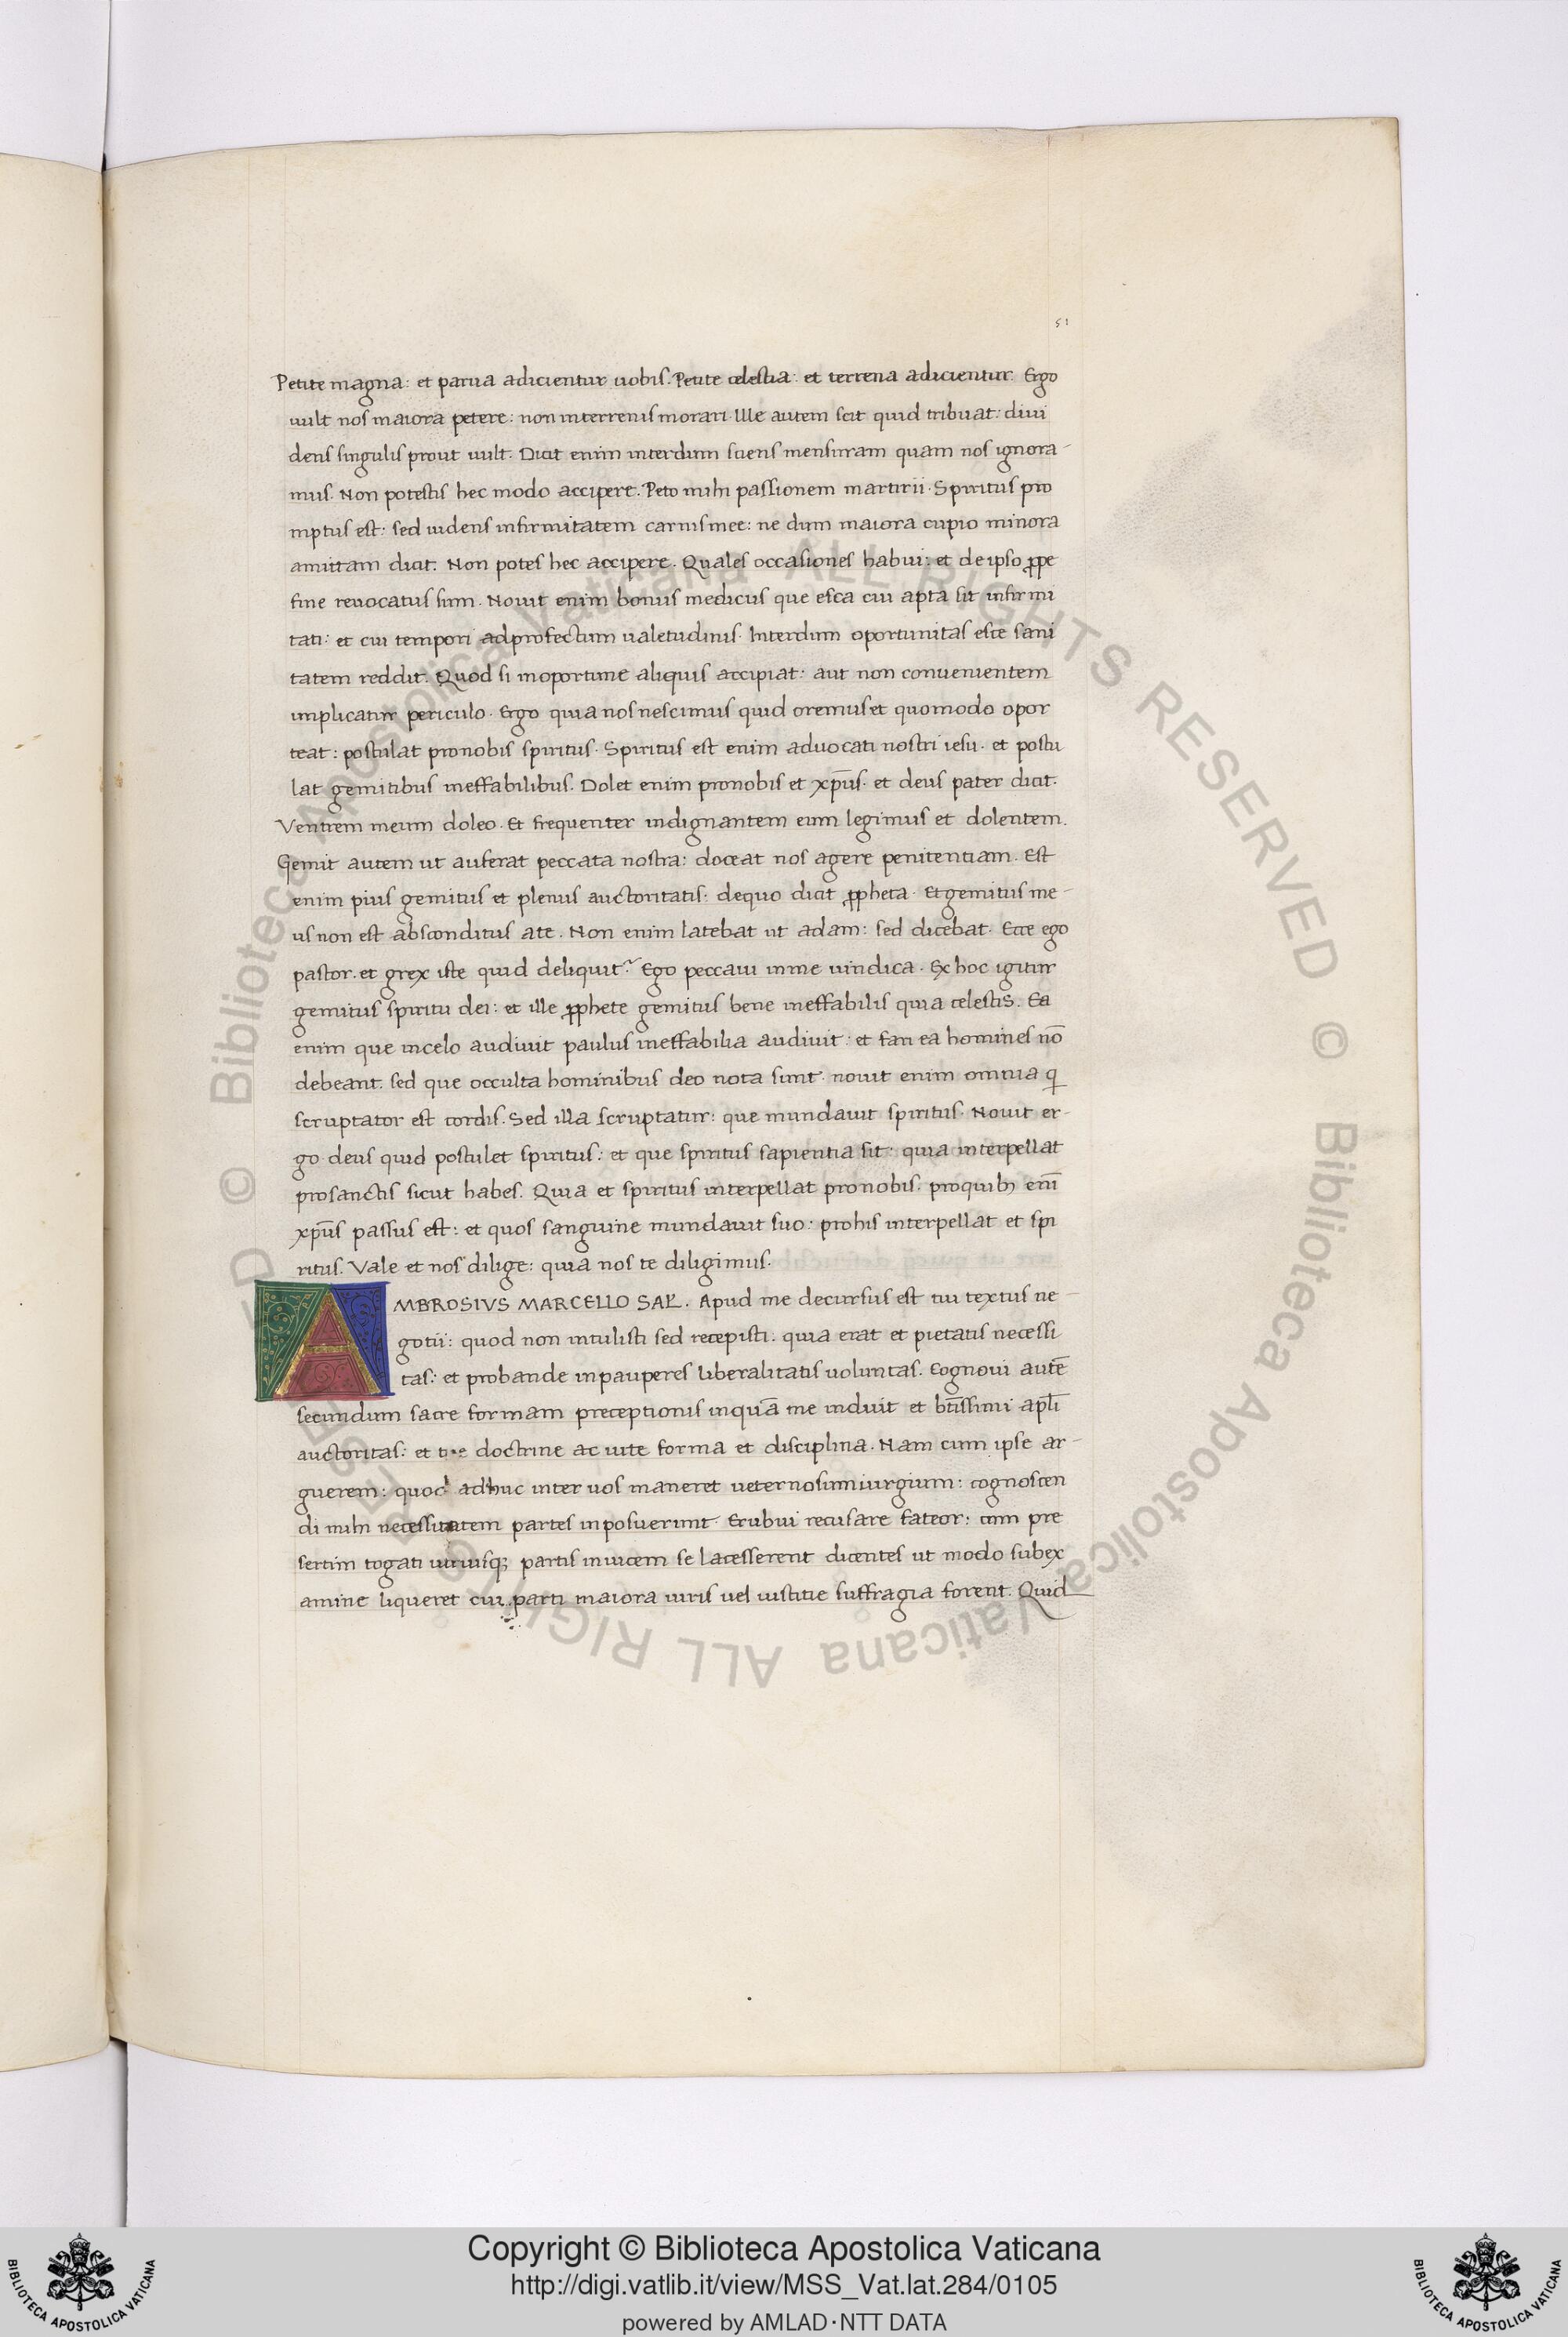 51
Petite magna: et parua adicientur uobis. Petite celestia: et terrena adicientur. Ergo
uult nos maiora petere: non interrenis morari. Ille autem scit quid tribuat: diui
dens singulis prout uult. Dicit enim interdum sciens mensuram quam nos ignora-
mus. Non potestis hec modo accipere. Peto mihi passionem martirii. Spiritus pro
mptus est: sed uidens infirmitatem carnis mee: ne dum maiora cupio minora
amittam dicit. Non potes hec accipere. Quales occasiones habui: et de ipso ꝓpe
fine reuocatus sum. Nouit enim bonus medicus que esca cui apta sit infirmi
tati: et cui tempori adprofectum ualetudinis. Interdum oportunitas esce sani
tatem reddit. Quod si inoportune aliquis accipiat: aut non conuenientem
implicatur periculo. Ergo quia nos nescimus quid oremus et quomodo opor
teat: postulat pronobis spiritus. Spiritus est enim aduocati nostri iesu. et postu
lat gemitibus ineffabilibus. Dolet enim pronobis et xp̄us. et deus pater dicit.
Ventrem meum doleo. Et frequenter indignantem eum legimus et dolentem.
Gemit autem ut auferat peccata nostra: doceat nos agere penitentiam. Est
enim pius gemitus et plenus auctoritatis: dequo dicit ꝓpheta. Et gemitus me-
us non est absconditus ate. Non enim latebat ut adam: sed dicebat. Ecce ego
pastor. et grex iste quid deliquit? Ego peccaui inme uindica. Ex hoc igitur
gemitus spiritu dei: et ille ꝓphete gemitus bene ineffabilis quia celestis. Ea
enim que incelo audiuit paulus ineffabilia audiuit: et fari ea homines nō
debeant. sed que occulta hominibus deo nota sunt. nouit enim omnia q
scruptator est cordis. Sed illa scruptatur: que mundauit spiritus. Nouit er-
go deus quid postulet spiritus: et que spiritus sapientia sit: quia interpellat
prosanctis sicut habes. Quia et spiritus interpellat pronobis. proquibꝫ enī
xp̄us passus est: et quos sanguine mundauit suo: prohis interpellat et spi
ritus. Vale et nos dilige: quia nos te diligimus.
AMBROSIVS MARCELLO SAL̄. Apud me decursus est tui textus ne-
gotii: quod non intulisti sed recepisti. quia erat et pietatis necessi
tas: et probande inpauperes liberalitatis uoluntas. Cognoui autē
secundum sacre formam preceptionis inquā me induit et bt̄issimi apl̄i
auctoritas: et doctrine ac uite forma et disciplina. Nam cum ipse ar-
guerem: quod adhuc inter uos maneret ueternosum iurgium: cognoscen
di mihi necessitatem partes inposuerunt. Erubui recusare fateor: cum pre
sertim togati utriusqꝫ partis inuicem se lacesserent dicentes ut modo subex
amine liqueret cui parti maiora iuris uel iustitie suffragia forent. Quid
© Biblioteca Apostolica Vaticana ALL RIGHTS RESERVED © Biblioteca Apostolica Vaticana ALL RIGHTS RESERVED
Copyright © Biblioteca Apostolica Vaticana
http://digi.vatlib.it/view/MSS_Vat.lat.284/0105
powered by AMLAD·NTT DATA
BIBLIOTECA APOSTOLICA VATICANA
BIBLIOTECA APOSTOLICA VATICANA